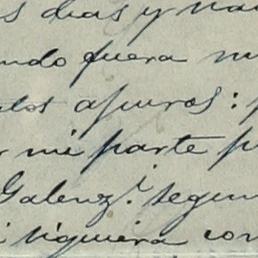 s dias y
ndo fuera
apuros:
mi parte
Galenz.ª segun
siquiera con